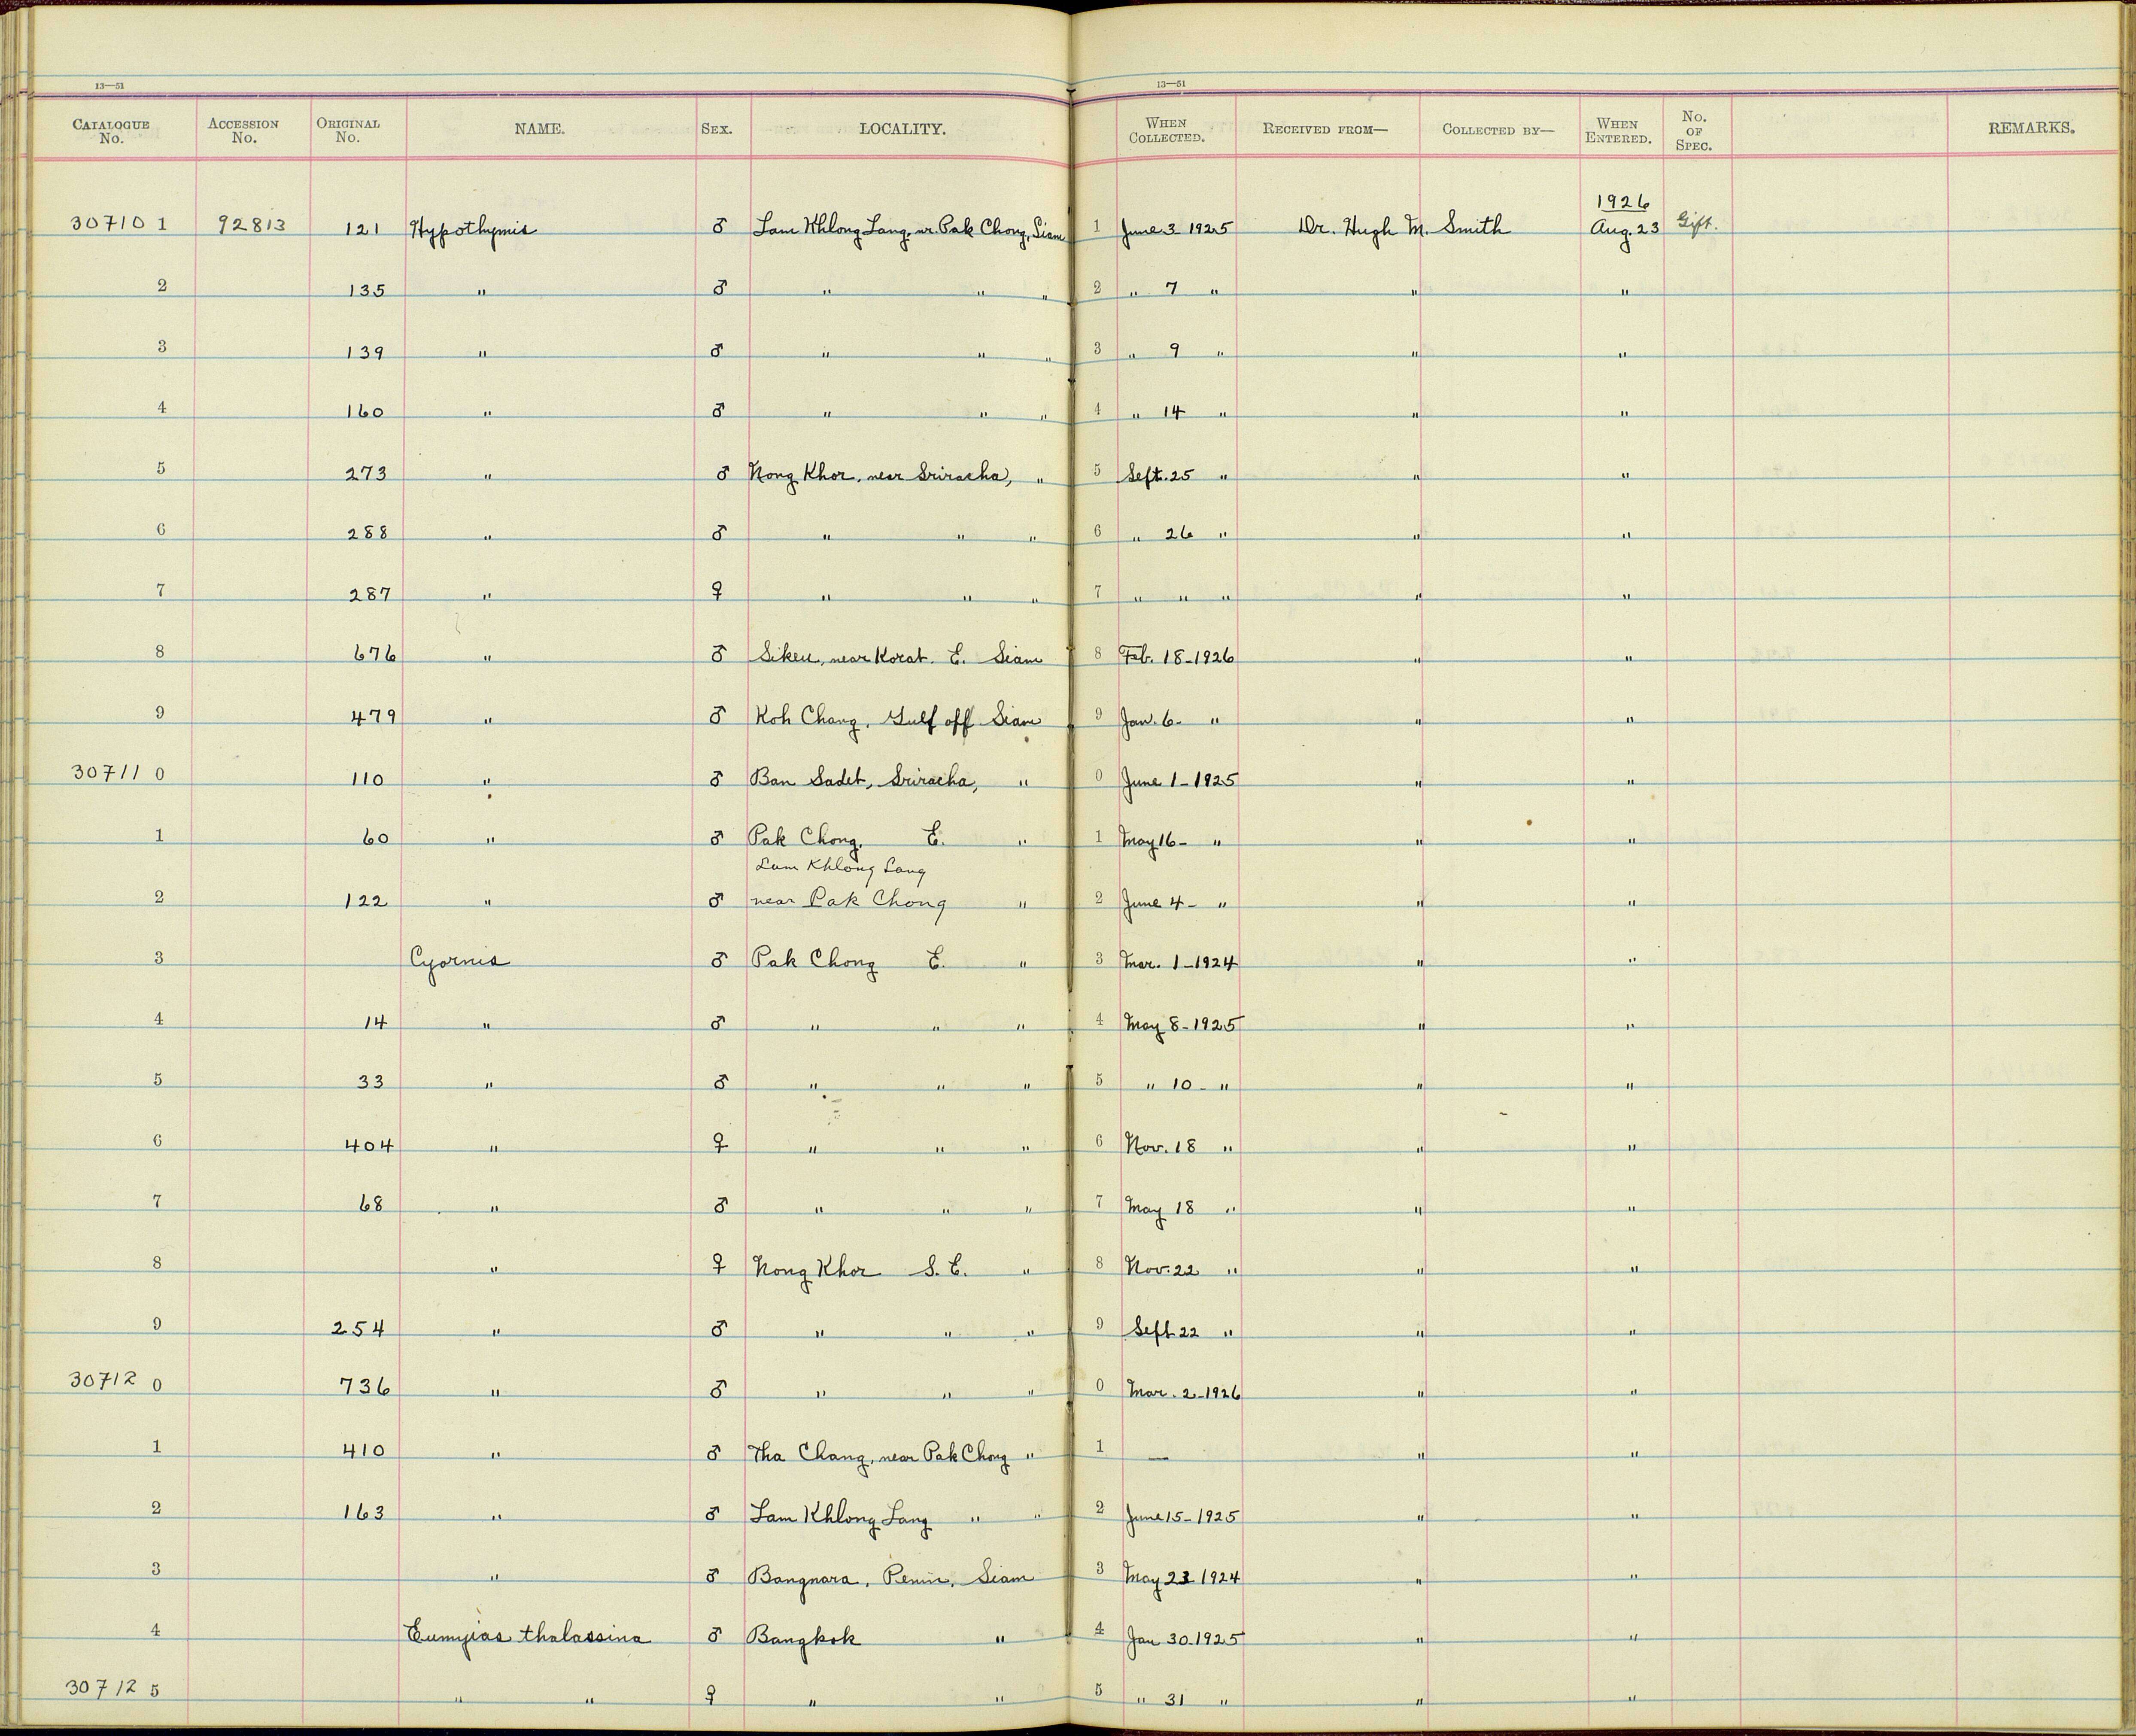 13—51 13—51
CATALOGUE No. ACCESSION No. ORIGINAL No. NAME. SEX. LOCALITY. WHEN COLLECTED. RECEIVED FROM— COLLECTED BY— WHEN ENTERED. No. OF SPEC. REMARKS.
1926
30710 1 92813 121 Hypothymis ♂ Lam Khlong Lang, nr. Pak Chong, Siam 1 June 3 1925 Dr. Hugh M. Smith Aug. 23 Gift.
2 135 " ♂ " " " 2 " 7 " " "
3 139 " ♂ " " " 3 " 9 " " "
4 160 " ♂ " " " 4 " 14 " " "
5 273 " ♂ Nong Khor, near Sriracha, " 5 Sept. 25 " " "
6 288 " ♂ " " " 6 " 26 " " "
7 287 " ♀ " " " 7 " " " " "
8 676 " ♂ Sikeu, near Korat. E. Siam 8 Feb. 18-1926 " "
9 479 " ♂ Koh Chang, Gulf off Siam 9 Jan. 6- " " "
30711 0 110 " ♂ Ban Sadet, Sriracha, " 0 June 1-1925 " "
1 60 " ♂ Pak Chong, E. " 1 May 16- " " "
Lam Khlong Lang
2 122 " ♂ near Pak Chong " 2 June 4- " " "
3 Cyornis ♂ Pak Chong E. " 3 Mar. 1-1924 " "
4 14 " ♂ " " " 4 May 8-1925 " "
5 33 " ♂ " " " 5 " 10- " " "
6 404 " ♀ " " " 6 Nov. 18 " " "
7 68 " ♂ " " " 7 May 18 " " "
8 " ♀ Nong Khor S. E. " 8 Nov. 22 " " "
9 254 " ♂ " " " 9 Sept 22 " " "
30712 0 736 " ♂ " " " 0 Mar. 2-1926 " "
1 410 " ♂ Tha Chang, near Pak Chong " 1 — " "
2 163 " ♂ Lam Khlong Lang " " 2 June 15-1925 " "
3 " ♂ Bangnara, Penin. Siam 3 May 23 1924 " "
4 Eumyias thalassina ♂ Bangkok " 4 Jan 30-1925 " "
30712 5 " " ♀ " " 5 " 31 " " "